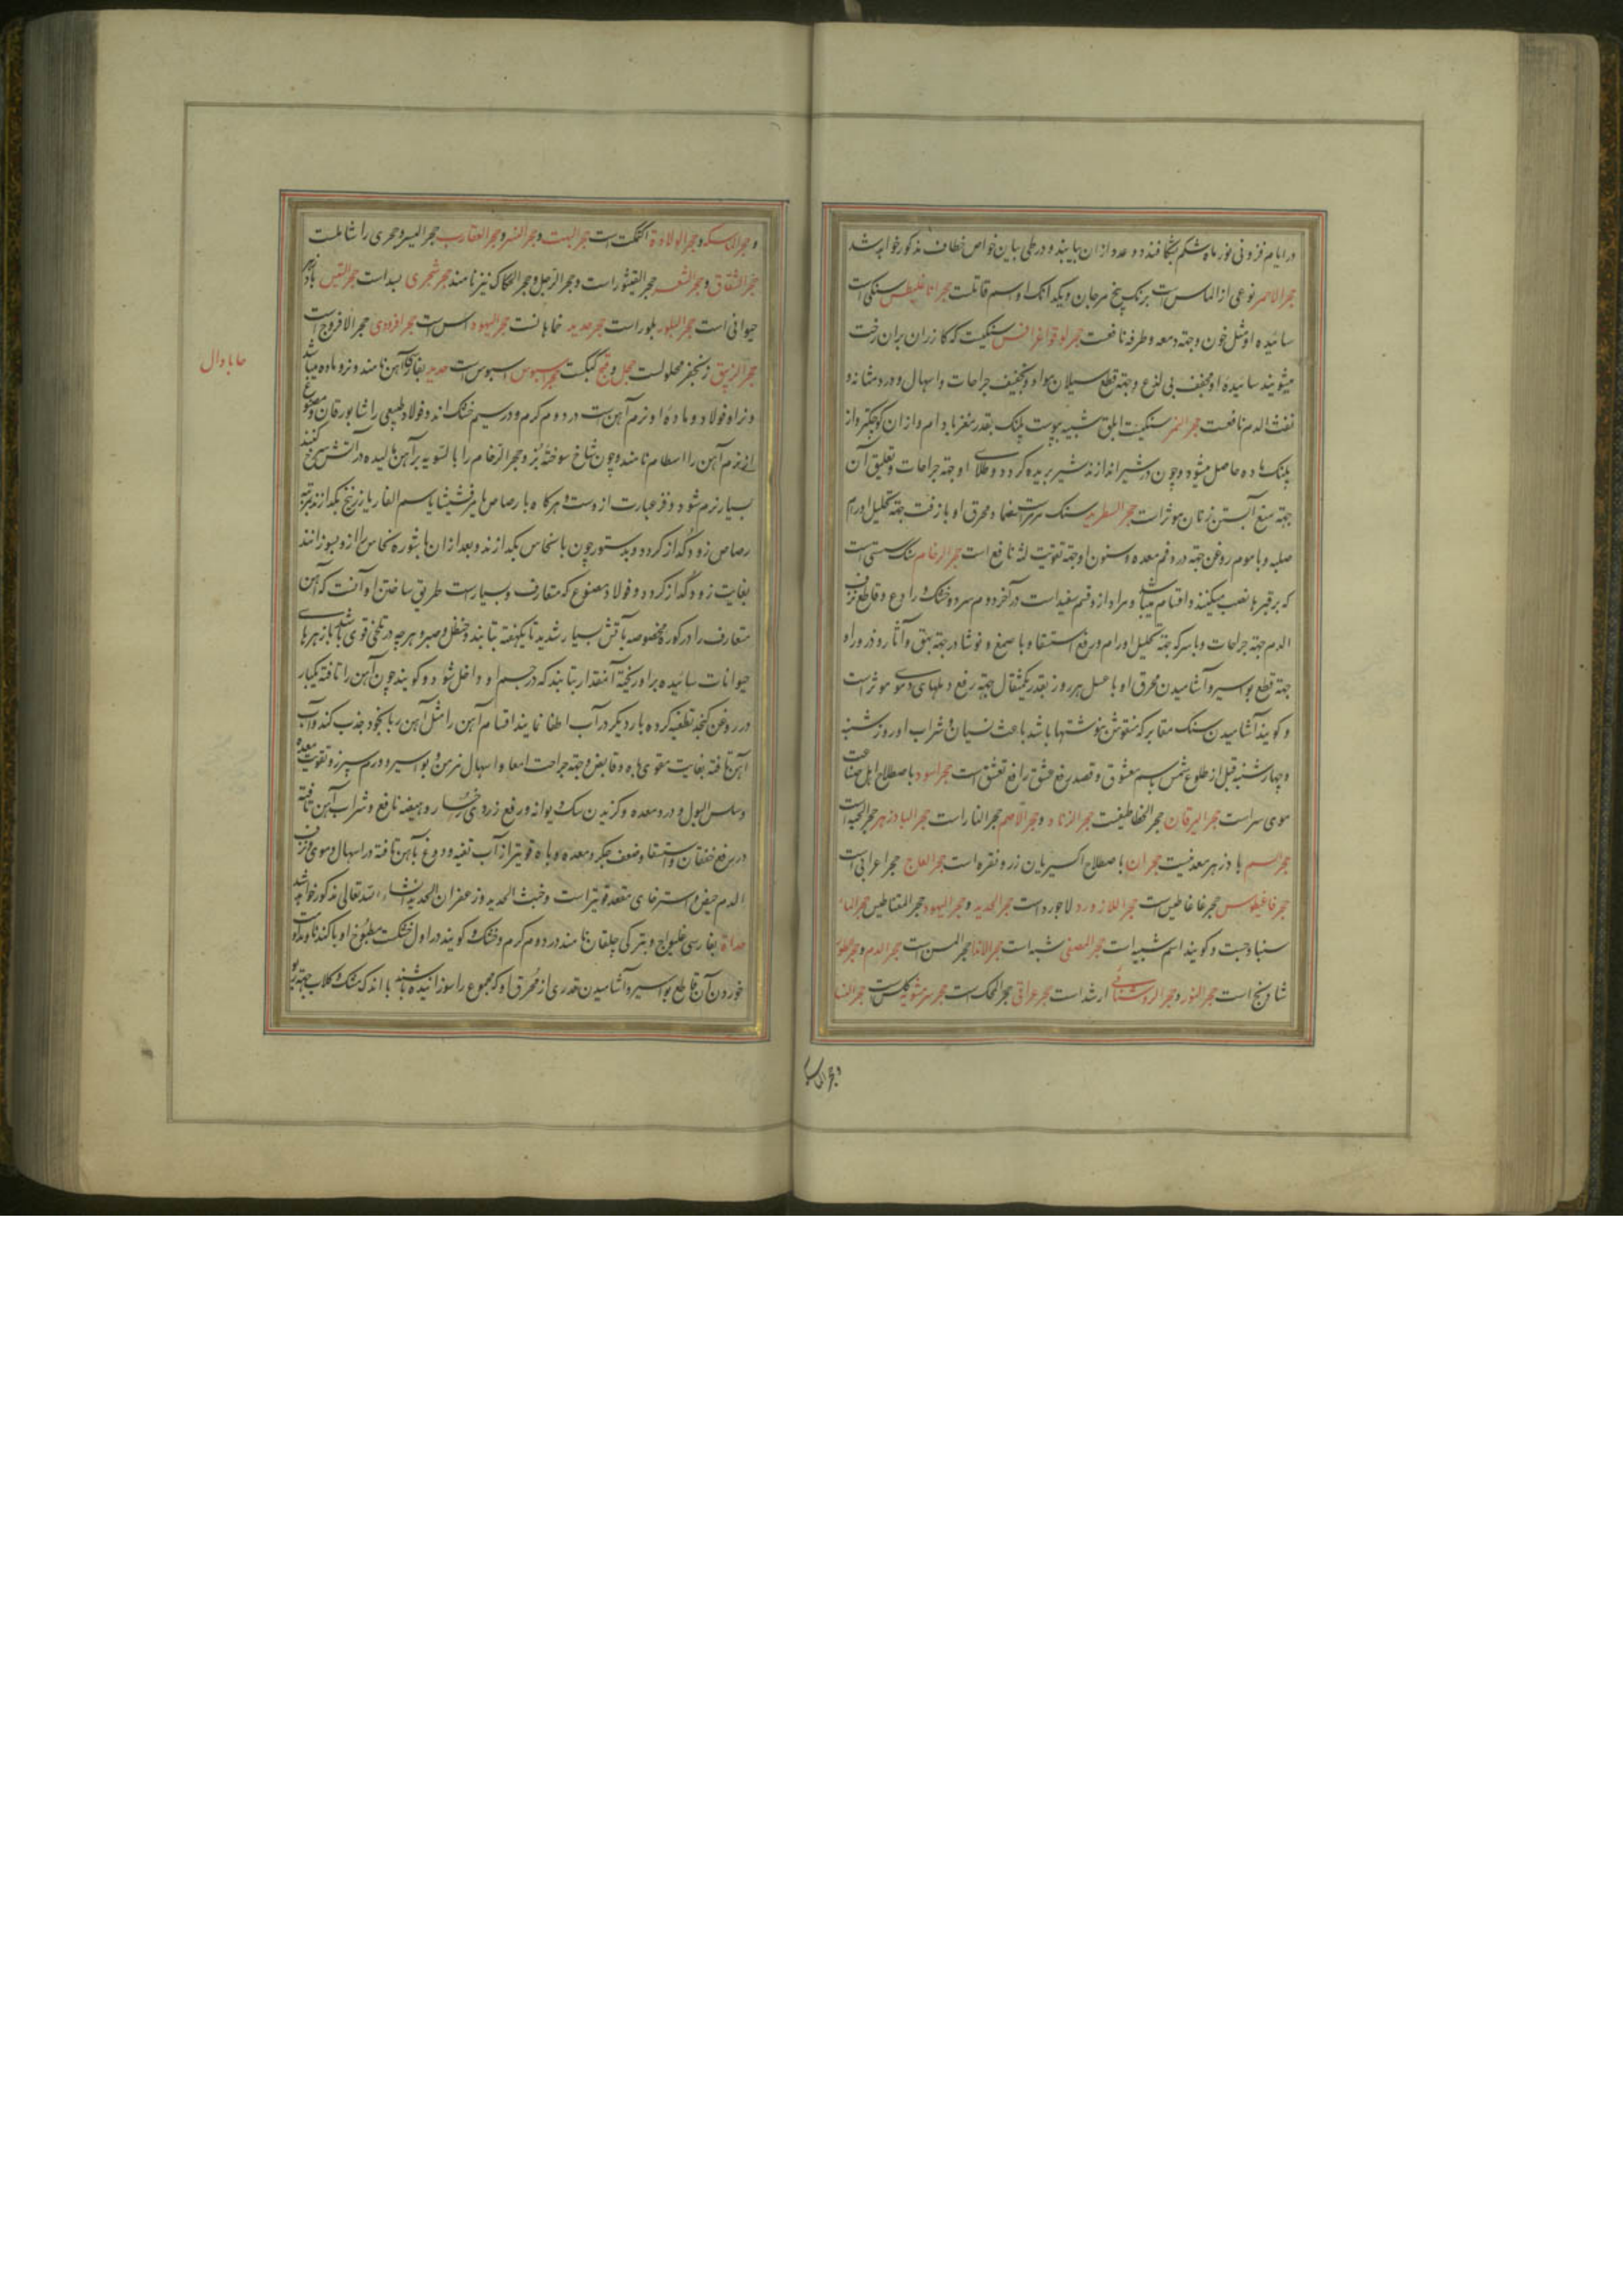 در ایام فزونی نور ماه شکم بشکافند دو عدد ازان بیابند و در طی بیان خواص خطاف مذکور خواهد شد
حجر الاحمر نوعی از الماس است برنک بیخ مرجان و یکدانک او سم قاتلست حجر اناغلیطس سنکی است
سائیده او مثل خون و جهة دمعه و طرفه نافعست حجر سنکیست که کازران بران رخت
میشویند سائیدهٔ او مجفف بی لذع و جهة قطع سیلان مواد و تجفیف جراحات و اسهال و درد مثانه و
نفث الدم نافعست حجر النمر سنکیست ابلق شبیه بپوست پلنک بقدر مغز بادام و ازان کوچکتر و از
پلنک ماده حاصل میشود و چون در شیر اندازند شیر بریده کردد و طلای او جهة جراحات و تعلیق آن
جهة منع آبستن زنان موثر است حجر السطریط سنک و محرق او با زفت جهة تحلیل اورام
صلبه و با موم روغن جهة درد فم معده و سنون او جهة تقویت لثه نافع است حجر الرخام سنک سستی است
که بر قبرها نصب میکنند و اقسام میباشد و مراد ازو قسم سفید است در آخر دوم سرد و خشک و رادع و قاطع نزف
الدم جهة جراحات و با سرکه جهة تحلیل اورام و رفع استسقا و با صمغ و نوشادر جهة بهق و آثار و ذرور او
جهة قطع بواسیر و آشامیدن محرق او با عسل هر روز بقدر یکمثقال جهة رفع دملهای دموی موثر است
و کویند آشامیدن سنک مقابر که منقوش بنوشتها باشد باعث نسیان و شراب او روز شنبه
و چهارشنبه قبل از طلوع شمس باسم معشوق و قصد رفع عشق رافع تعشق است حجر اسود باصطلاح اهل صناعت
موی سر است حجر الیرقان حجر الخطاطیفست حجر الزناد و حجر الاصم حجر النار است حجر البادزهر حجر الحیه است
حجر السم پادزهر معدنیست حجران باصطلاح اکسیریان زر و نقره است حجر العاج حجر اعرابی است
حجر غاغیطوس حجر غاغاطیس است حجر اللازورد لاجورد است حجر الحدید و حجر الیهود حجر المغناطیس حجر الماس
سنبادجست و کویند اسم شبیه است حجر المصفی شبه است حجر الاناث حجر المسن است حجر الدم و حجر الطور
شادنج است حجر النور و حجر الروشنائی ارشد است حجر عراقی حجر المحک است حجر کلس است حجر النسا
و حجر الماسکه
و حجر الماسکه و حجر الولادة اکتمکت است حجر البهت و حجر النسر و حجر العقاب حجر الیسر و حجری را شاملست
حجر الشقاق و حجر الشعر حجر القیشور است و حجر الرجل و حجر الحکاک نیز نامند حجر شجری بسد است حجر التیس پادزهر
حیوانی است حجر البلور بلور است حجر حدید خماهانست حجر الیهود است حجر افرودی حجر الافروج است
حجر الزیبق زنجفر محلولست حجل و قبج کبکست حجر اسیوس اسیوس است حدید بفارسی آهن نامند و نر و ماده میباشد
و نر او فولاد و مادهٔ او نرم آهن است در دوم کرم و در سیم خشک اند و فولاد طبیعی را شابورقان و مصنوع
از نرم آهن را اسطام نامند و چون شاخ سوختهٔ بز و حجر الرخام را بالسویه بر آهن مالیده در آتش سرخ کنند
بسیار نرم شود و نر عبارت ازوست و هر کاه با رصاص یا مرقشیثا یا سم الفار یا زرنیخ بکدازند بمرتبه
رصاص زود کداز کردد و بدستور چون با نحاس بکدازند و بعد ازان با شوره نحاس را ازو بسوزانند
بغایت زود کداز کردد و فولاد مصنوع که متعارف و بسیارست طریق ساختن او آنست که آهن
متعارف را در کورهٔ مخصوصه بآتش بسیار شدید تا یکهفته بتابند و حنظل و صبر و هر چه در تلخی قوی باشد با زهرهای
حیوانات سائیده بر او ریخته آنمقدار بتابند که در جسم او داخل شود و کویند چون آهن را تافته یکبار
در روغن کنجد تطفیه کرده بار دیکر در آب اطفا نمایند اقسام آهن را مثل آهن ربا بخود جذب کند و آب
آهن تافته بغایت مقوی باه و قابض و جهة جراحت امعا و اسهال مزمن و بواسیر و ورم سپرز و تقویت معده
و سلس البول و درد معده و کزیدن سک دیوانه و رفع زردی رخسار و هیضه نافع و شراب آهن تافته
در رفع خفقان و استسقا و ضعف جکر و معده و باه قویتر از آب تفیه و دوغ بآهن تافته در اسهال دموی و نزف
الدم حیض و استرخای مقعد قویتر است و خبث الحدید و زعفران الحدید انشاء الله تعالی مذکور خواهد شد
حداة بفارسی غلیواج و بترکی چلقان نامند در دوم کرم و خشک و کویند در اول خشکست مطبوخ او با کندنا و مداومت
خوردن آن قاطع بواسیر و آشامیدن قدری از محرق او که مجموع را سوزانیده باشند با اندک مشک و کلاب جهة ربو
حا با دال